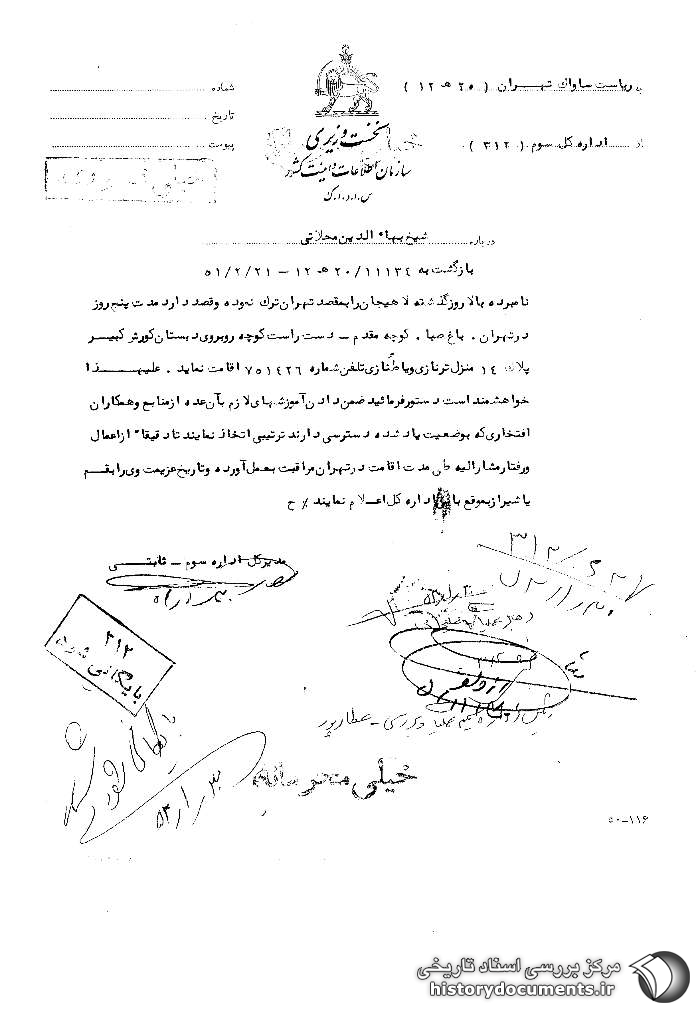 به ریاست ساواک تهران ( ۲۰ هـ ۱۲ )
شماره
تاریخ
از اداره کل سوم ( ۳۱۲ )
پیوست
نخست وزیری
سازمان اطلاعات و امنیت کشور
س.ا.و.ا.ک
درباره شیخ بهاء الدین محلاتی
بازگشت به ۲۰/۱۱۱۳۴ هـ ۱۲ – ۵۱/۲/۲۱
نامبرده بالا روز گذشته لاهیجان را بمقصد تهران ترک نموده و قصد دارد مدت پنج روز
در تهران . باغ صبا . کوچه مقدم – دست راست کوچه روبروی دبستان کورش کبیر
پلاک ۱۴ منزل ترنازی و یا طنازی تلفن شماره ۷۵۱۴۲۶ اقامت نماید . علیهذا
خواهشمند است دستور فرمائید ضمن دادن آموزشهای لازم بآن عده از منابع و همکاران
افتخاری که بوضعیت یاد شده دسترسی دارند ترتیبی اتخاذ نمایند تا دقیقا" از اعمال
و رفتار مشارالیه طی مدت اقامت در تهران مراقبت بعمل آورده و تاریخ عزیمت وی را بقم
یا شیراز بموقع باین اداره کل اعلام نمایند / ح
مدیرکل اداره سوم – ثابتی
۳۱۲
بایگانی شود
رئیس اداره یکم عملیات و بررسی – عطارپور
بایگانی شود
۵۳/۱/۳۰
خیلی محرمانه
۵۰-۱۱۶
مرکز بررسی اسناد تاریخی
historydocuments.ir